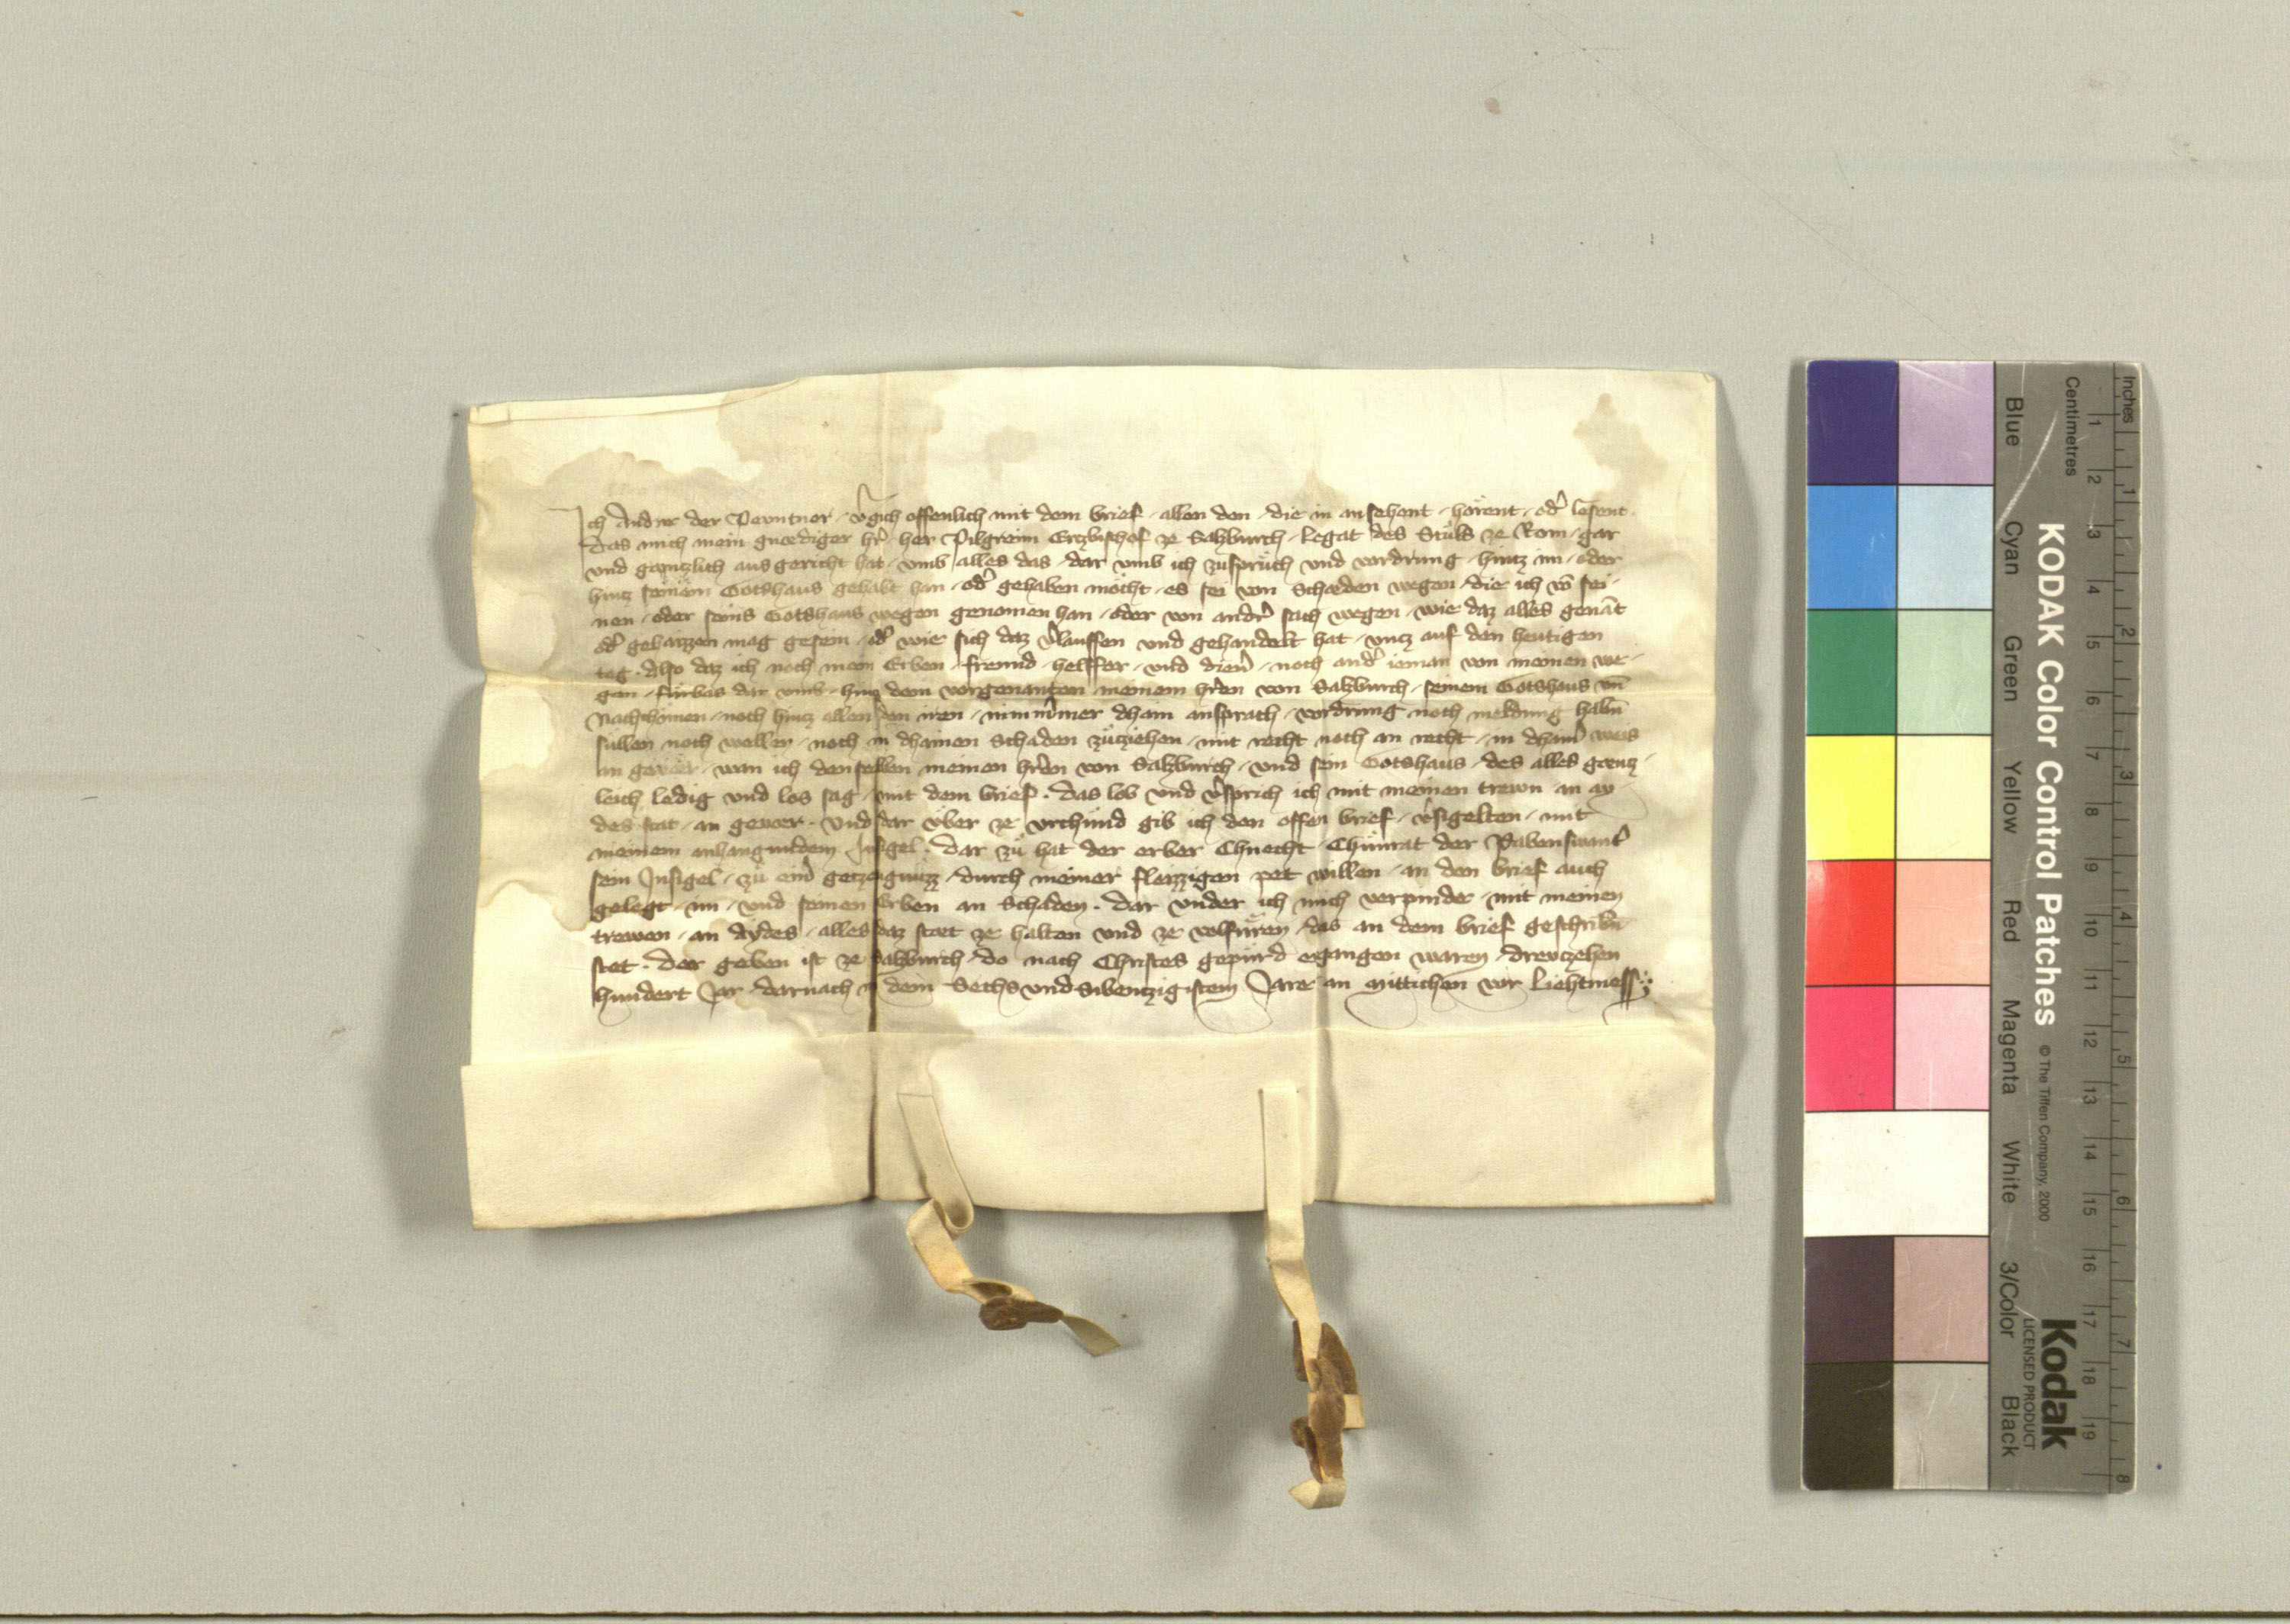 Ich Andre der Pevntner · v̾gich offenlich mit dem brief · allen den · die in ansehent · hörent · od̾ lesent ·
Das mich mein gnædiger hr̾ · her Pilgreim Ertzbischof ze Saltzburch · Legat des Stůls ze Rom · gar
und gæntzlich aus gericht hat · vmb alles das · dar vmb ich züsprüch und vordrung · hintz im · oder
hintz seinem Gotshaus gehabt han · od̾ gehaben möcht · es sei von Schæden wegen · die ich vō sei-
nen · oder seins Gotshaus wegen genomen han · oder von andr̾ sach wegen · wie daz alles genāt
od̾ gehaizzen mag gesein · od̾ wie sich daz v̾lauffen und gehandelt hat · vntz auf den heutigen
tag · Also daz ich noch mein Erben · frewnd · helffer · und dien̾ · noch and̾ ieman von meinen we-
gen · fürbas dar vmb · hintz dem vorgenanten meinem hr̾en von Saltzburch · seinem Gotshaus vn̄
Nachkömen · noch hintz allen den iren · nimm̾mer dhain ansprach · vordrung noch meldung habn̄
sullen noch wellen · noch in dhainen Schaden zůtziehen · mit recht noch an recht · in dhain̾ weis
an gevær · wan ich denselben meinen hr̾en von Saltzburch · und sein Gotshaus · des alles gæntz-
leich ledig und los sag · mit dem brief · Das lob und v̾sprich ich mit meinen trewn · an ay-
des stat · an gevær · Und dar vber ze vrchünd gib ich den offen brief · v̾sigelten · mit
meinem anhangundem Insigel · Dar zů hat der erber Chnecht · Chünrat der Rabenswant̾
sein Insigel · zů ein̾ getzeugnüzz · durch meiner fleizzigen pet willen · an den brief auch
gelegt · im · und seinen Erben an Schaden · Dar under ich mich verpinde · mit meinen
trewen · an Aydes · alles daz stæt ze halten und ze volfüren · das an dem brief geschribn̄
stet · Der geben ist ze Saltzburch · do nach Christes gepürd ergangen waren · drewtzehen
hundert Jar · darnach in dem Sechsundsibentzigistem Jare · an Mittichen vor Liehtmess
KODAK Color Control Patches
© The Tiffen Company, 2000
Kodak
LICENSED PRODUCT
Inches
Centimetres
1 2 3 4 5 6 7 8
1 2 3 4 5 6 7 8 9 10 11 12 13 14 15 16 17 18 19
Blue
Cyan
Green
Yellow
Red
Magenta
White
3/Color
Black